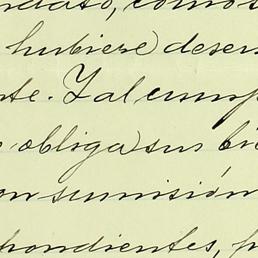 ndato, como s
hubiese desem
te. Y al cump
obliga sus bie
on sumisión
pondientes, p